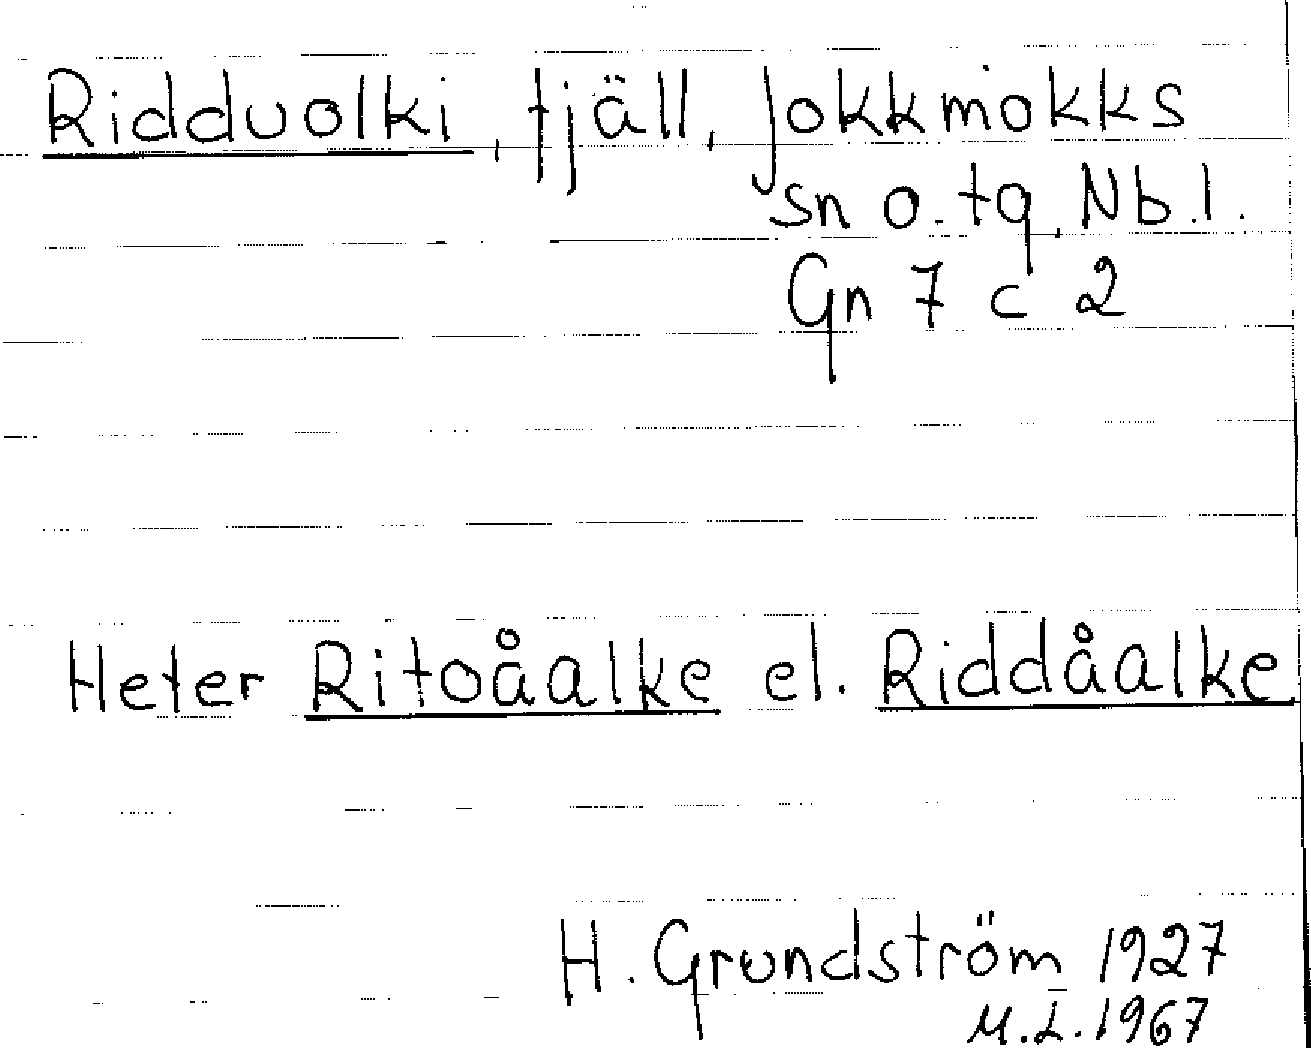 Ridduolki, fjäll, Jokkmokks
sn o. tg, Nb.l.
Gn 7 c 2
Heter Ritoåalke el. Riddåalke
H. Grundström 1927
M.L. 1967